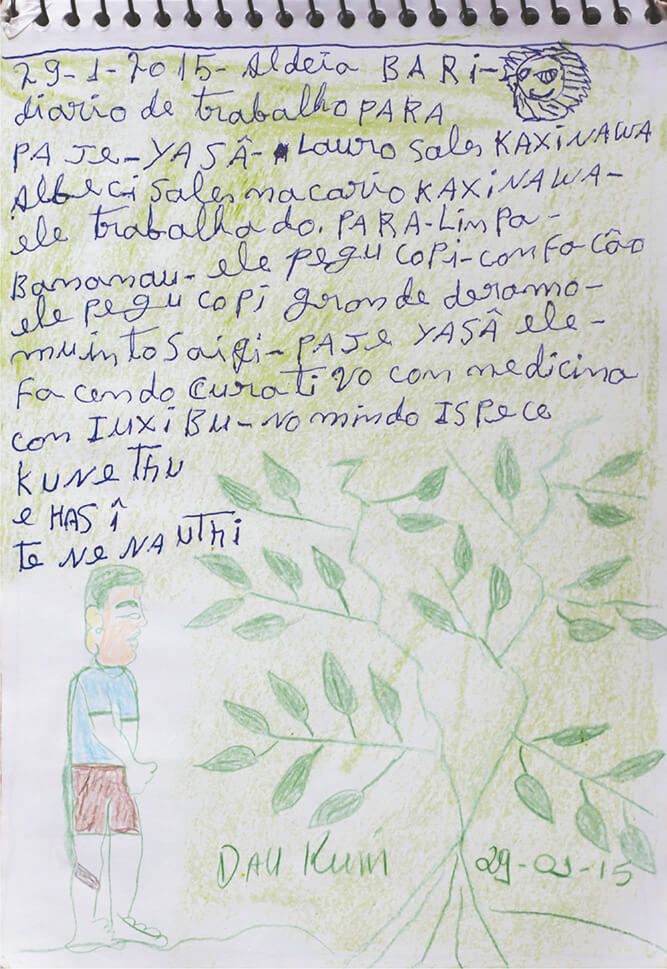 29-1-2015-Aldeia BARi-
diario de trabalho PARA
PAJe-YASÂ- Lauro Sales KAXiNAWA
Albeci Sales macario KAXiNAWA-
ele trabalhado. PARA-Limpa-
Bananau- ele pegu copi-con facão
ele pegu copi gronde deramo-
muinto Saiqi-PAJe YASÂ ele-
facendo curativo con medicina
con IUXiBU-No mindo ISPece
KUNeThU
e HASÎ
te Ne NAUThi
DAU Kuin
29-01-15